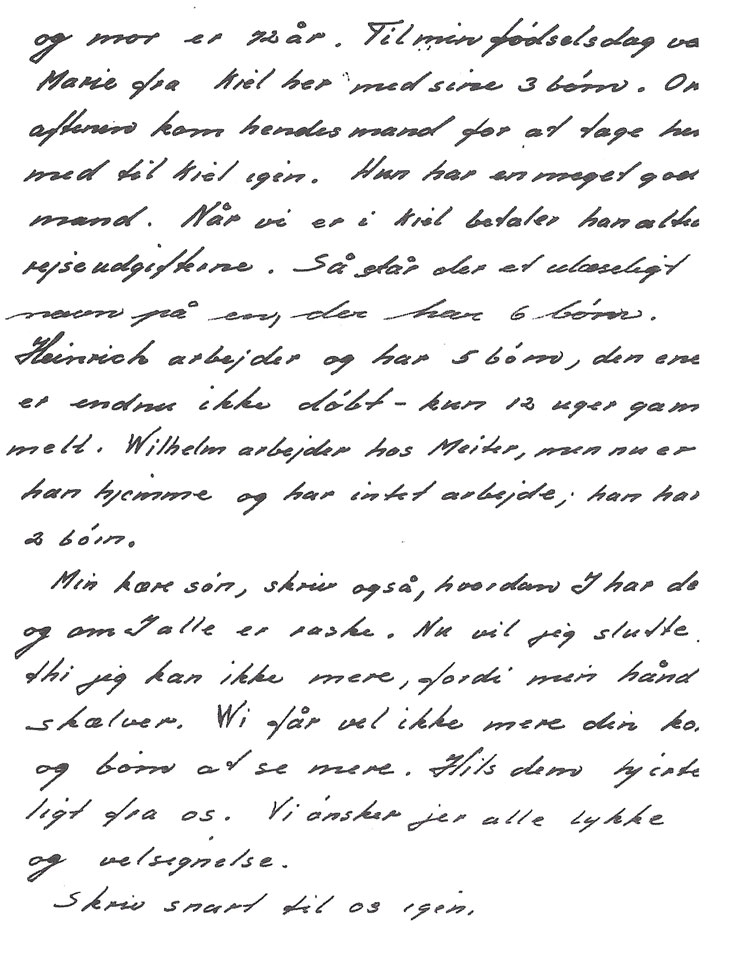 og mor er 72 år. Til min fødselsdag va
Marie fra Kiel her med sine 3 børn. Om
aftenen kom hendes mand for at tage hen
med til Kiel igen. Hun har en meget god
mand. Når vi er i Kiel betaler han altid
rejseudgifterne. Så står der et ulæseligt
navn på en, der har 6 børn.
Heinrich arbejder og har 5 børn, den ene
er endnu ikke døbt - kun 12 uger gam
melt. Wilhelm arbejder hos Meiter, men nu er
han hjemme og har intet arbejde; han har
2 børn.
Min kære søn, skriv også, hvordan I har de
og om I alle er raske. Nu vil jeg slutte
thi jeg kan ikke mere, fordi min hånd
skælver. Wi får vel ikke mere din ko.
og børn at se mere. Hils dem hjerte
ligt fra os. Vi ønsker jer alle lykke
og velsignelse.
Skriv snart til os igen.